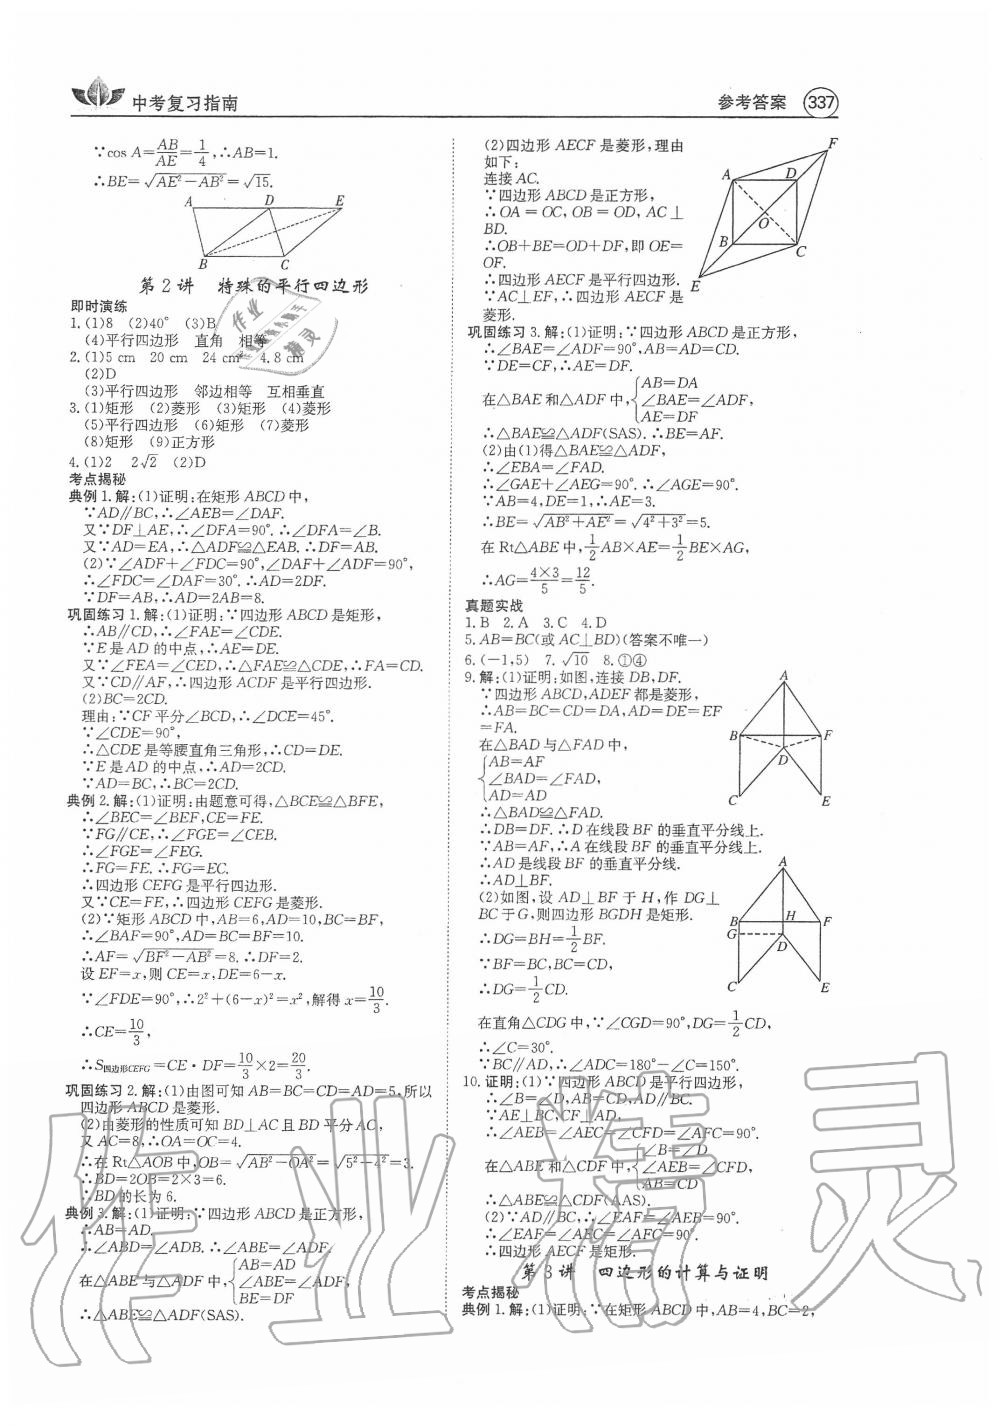 中考复习指南
参考答案 337
∵cos A=AB/AE=1/4,∴AB=1.
∴BE=√(AE²-AB²)=√15.
A D E
B C
第2讲 特殊的平行四边形
即时演练
1.(1)8 (2)40° (3)B
(4)平行四边形 直角 相等
2.(1)5 cm 20 cm 24 cm² 4.8 cm
(2)D
(3)平行四边形 邻边相等 互相垂直
3.(1)矩形 (2)菱形 (3)矩形 (4)菱形
(5)平行四边形 (6)矩形 (7)菱形
(8)矩形 (9)正方形
4.(1)2 2√2 (2)D
考点揭秘
典例1.解:(1)证明:在矩形ABCD中,
∵AD∥BC,∴∠AEB=∠DAF.
又∵DF⊥AE,∴∠DFA=90°.∴∠DFA=∠B.
又∵AD=EA,∴△ADF≌△EAB.∴DF=AB.
(2)∵∠ADF+∠FDC=90°,∠DAF+∠ADF=90°,
∴∠FDC=∠DAF=30°.∴AD=2DF.
∵DF=AB,∴AD=2AB=8.
巩固练习1.解:(1)证明:∵四边形ABCD是矩形,
∴AB∥CD,∴∠FAE=∠CDE.
∵E是AD的中点,∴AE=DE.
又∵∠FEA=∠CED,∴△FAE≌△CDE,∴FA=CD.
又∵CD∥AF,∴四边形ACDF是平行四边形.
(2)BC=2CD.
理由:∵CF平分∠BCD,∴∠DCE=45°.
∵∠CDE=90°,
∴△CDE是等腰直角三角形,∴CD=DE.
∵E是AD的中点,∴AD=2CD.
∵AD=BC,∴BC=2CD.
典例2.解:(1)证明:由题意可得,△BCE≌△BFE,
∴∠BEC=∠BEF,CE=FE.
∵FG∥CE,∴∠FGE=∠CEB.
∴∠FGE=∠FEG.
∴FG=FE.∴FG=EC.
∴四边形CEFG是平行四边形.
又∵CE=FE,∴四边形CEFG是菱形.
(2)∵矩形ABCD中,AB=6,AD=10,BC=BF,
∴∠BAF=90°,AD=BC=BF=10.
∴AF=√(BF²-AB²)=8.∴DF=2.
设EF=x,则CE=x,DE=6-x.
∵∠FDE=90°,∴2²+(6-x)²=x²,解得x=10/3.
∴CE=10/3,
∴S四边形CEFG=CE·DF=10/3×2=20/3.
巩固练习2.解:(1)由图可知AB=BC=CD=AD=5,所以
四边形ABCD是菱形.
(2)由菱形的性质可知BD⊥AC且BD平分AC,
又AC=8,∴OA=OC=4.
∴在Rt△AOB中,OB=√(AB²-OA²)=√(5²-4²)=3.
∴BD=2OB=2×3=6.
∴BD的长为6.
典例3.解:(1)证明:∵四边形ABCD是正方形,
∴AB=AD.
∴∠ABD=∠ADB.∴∠ABE=∠ADF.
在△ABE与△ADF中{AB=AD
∠ABE=∠ADF
BE=DF
∴△ABE≌△ADF(SAS).
(2)四边形AECF是菱形,理由
如下:
连接AC.
∵四边形ABCD是正方形,
∴OA=OC,OB=OD,AC⊥
BD.
∴OB+BE=OD+DF,即OE=
OF.
∴四边形AECF是平行四边形.
∵AC⊥EF,∴四边形AECF是
菱形.
F
A D
O
B C
E
巩固练习3.解:(1)证明:∵四边形ABCD是正方形,
∴∠BAE=∠ADF=90°,AB=AD=CD.
∵DE=CF,∴AE=DF.
在△BAE和△ADF中,{AB=DA
∠BAE=∠ADF,
AE=DF
∴△BAE≌△ADF(SAS).∴BE=AF.
(2)由(1)得△BAE≌△ADF,
∴∠EBA=∠FAD.
∴∠GAE+∠AEG=90°.∴∠AGE=90°.
∵AB=4,DE=1,∴AE=3.
∴BE=√(AB²+AE²)=√(4²+3²)=5.
在Rt△ABE中,1/2AB×AE=1/2BE×AG,
∴AG=4×3/5=12/5.
真题实战
1.B 2.A 3.C 4.D
5.AB=BC(或AC⊥BD)(答案不唯一)
6.(-1,5) 7.√10 8.①④
9.解:(1)证明:如图,连接DB,DF.
∵四边形ABCD,ADEF都是菱形,
∴AB=BC=CD=DA,AD=DE=EF
=FA.
在△BAD与△FAD中,
{AB=AF
∠BAD=∠FAD,
AD=AD
∴△BAD≌△FAD.
∴DB=DF.∴D在线段BF的垂直平分线上.
∵AB=AF,∴A在线段BF的垂直平分线上.
∴AD是线段BF的垂直平分线.
∴AD⊥BF.
A
B F
D
C E
(2)如图,设AD⊥BF于H,作DG⊥
BC于G,则四边形BGDH是矩形.
∴DG=BH=1/2BF.
∵BF=BC,BC=CD,
∴DG=1/2CD.
A
B H F
G
D
C E
在直角△CDG中,∵∠CGD=90°,DG=1/2CD,
∴∠C=30°.
∵BC∥AD,∴∠ADC=180°-∠C=150°.
10.证明:(1)∵四边形ABCD是平行四边形,
∴∠B=∠D,AB=CD,AD∥BC.
∵AE⊥BC,CF⊥AD,
∴∠AEB=∠AEC=∠CFD=∠AFC=90°.
在△ABE和△CDF中,{∠B=∠D
∠AEB=∠CFD,
AB=CD
∴△ABE≌△CDF(AAS).
(2)∵AD∥BC,∴∠EAF=∠AEB=90°.
∴∠EAF=∠AEC=∠AFC=90°.
∴四边形AECF是矩形.
第3讲 四边形的计算与证明
考点揭秘
典例1.解:(1)证明:∵在矩形ABCD中,AB=4,BC=2,
作业精灵